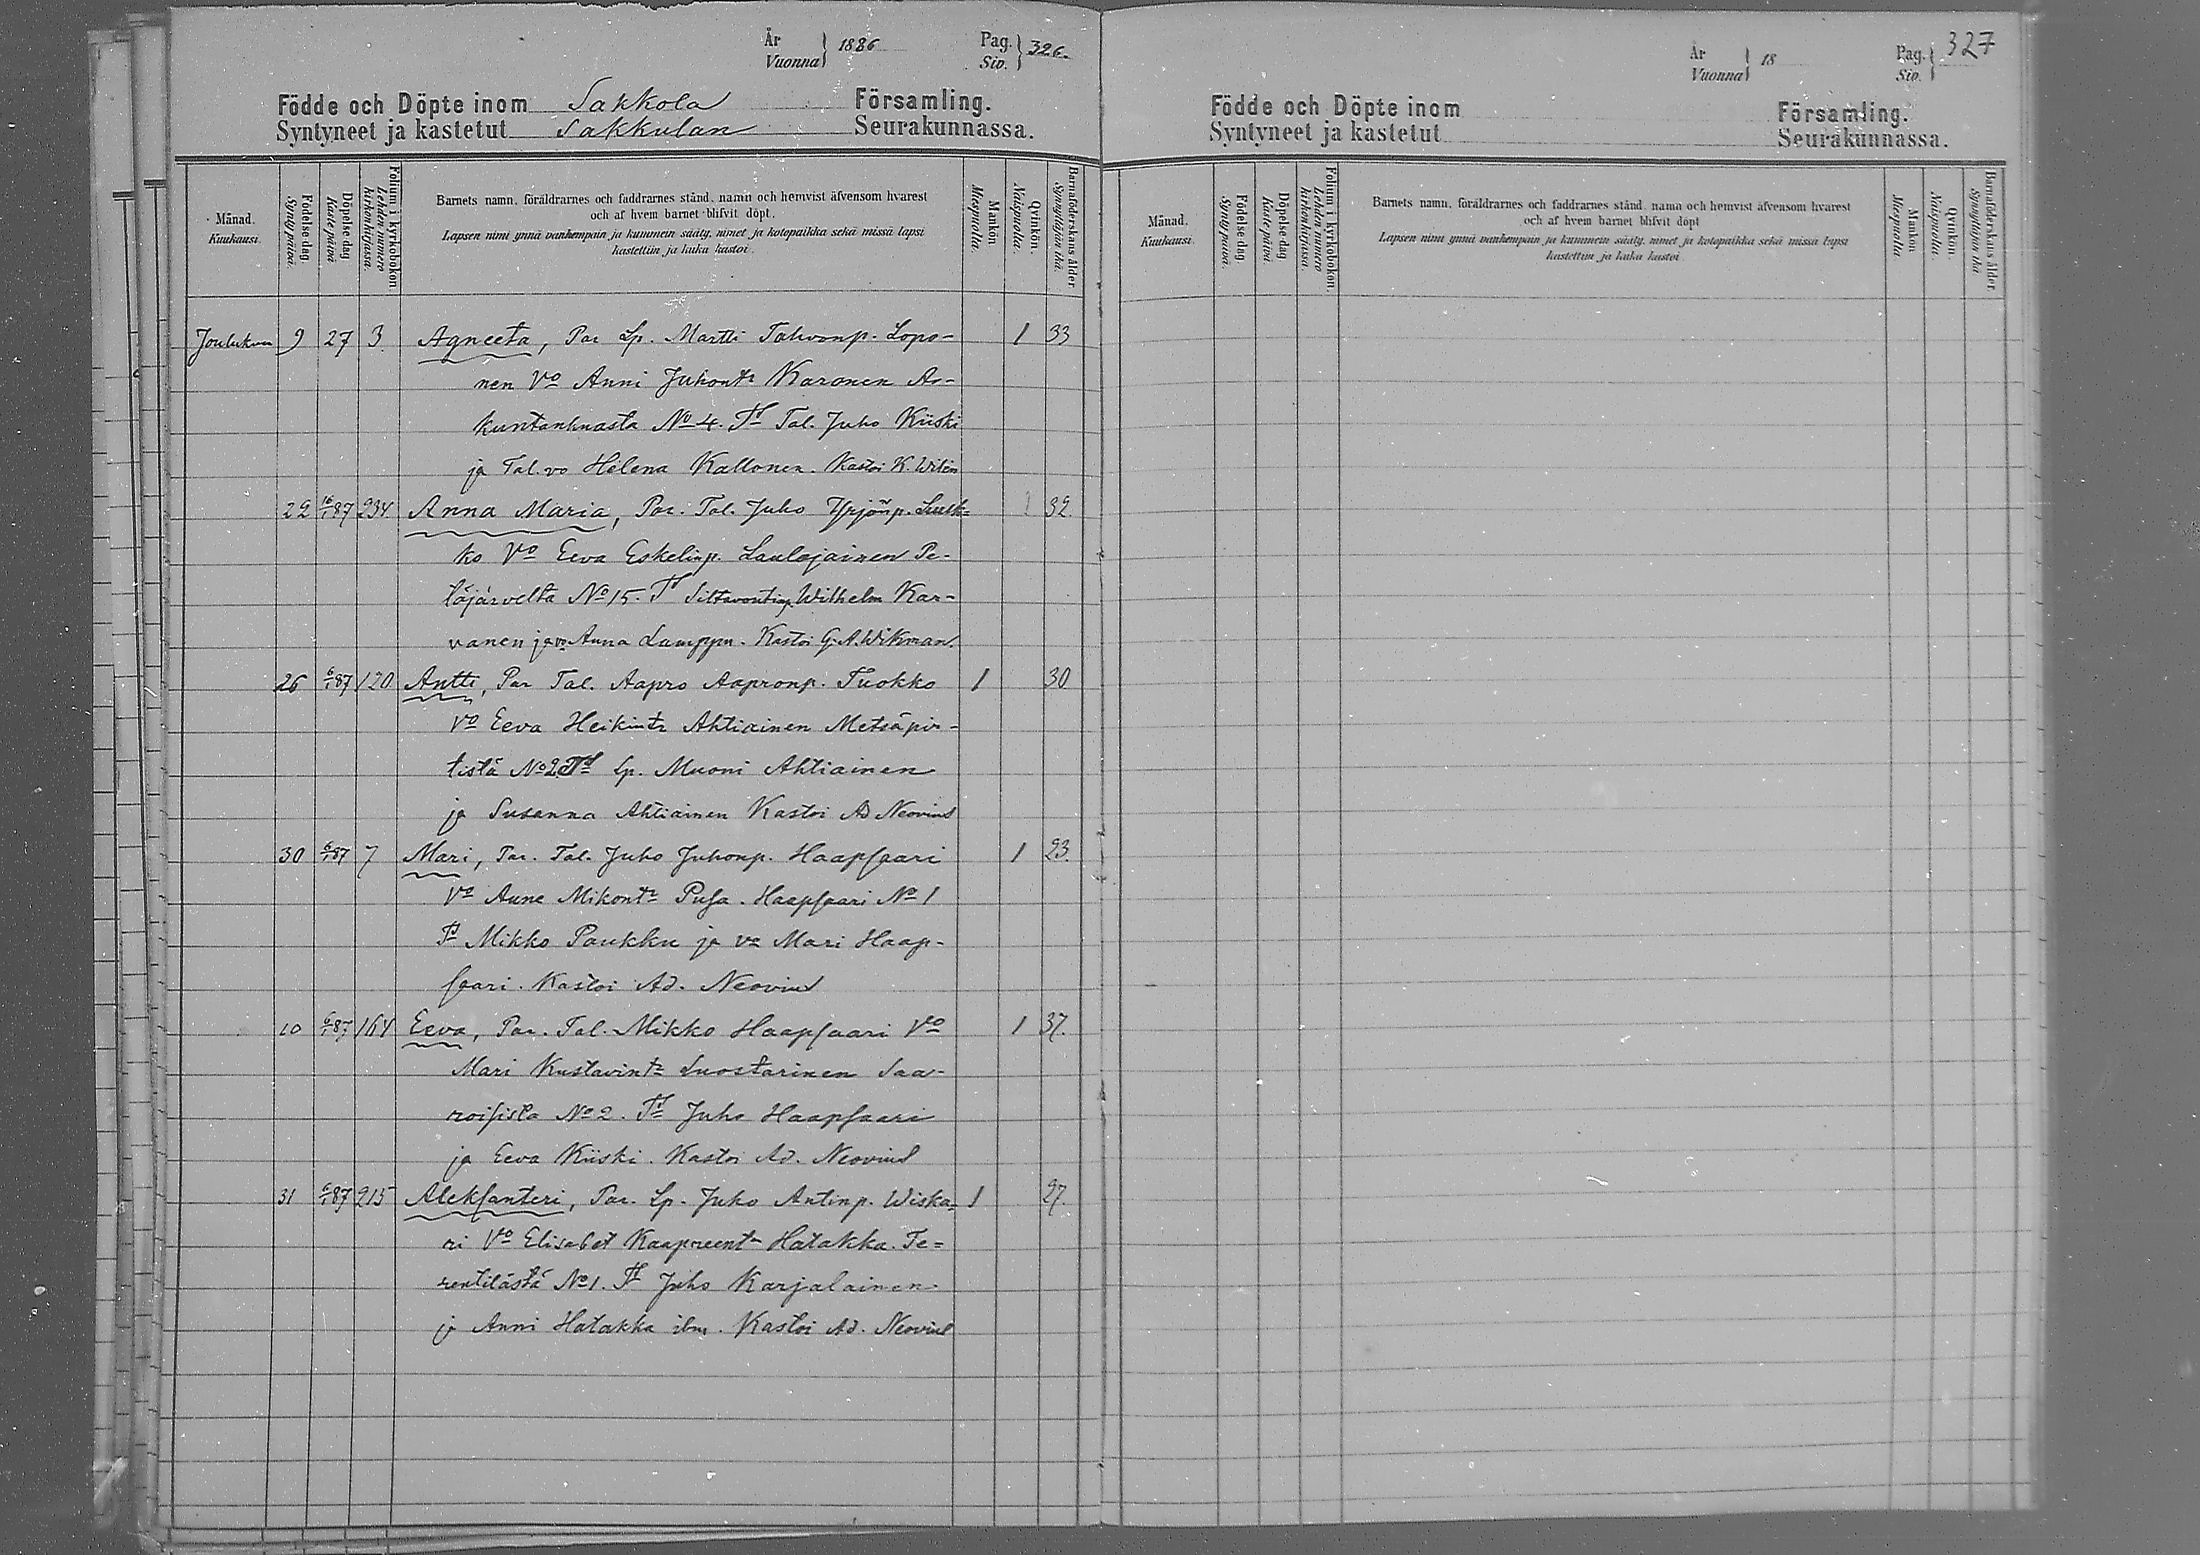 År
Vuonna } 1886
Pag.
Siv. } 326.
Födde och Döpte inom Sakkola Församling.
Syntyneet ja kastetut Sakkulan Seurakunnassa.
Månad.
Kuukausi.
Födelse-dag.
Synty päivä.
Döpelse-dag
Kaste päivä
Folium i kyrkoboken
Lehden numero
kirkonkirjassa.
Barnets namn, föräldrarnes och faddrarnes stånd, namn och hemvist äfvensom hvarest
och af hvem barnet blifvit döpt.
Lapsen nimi ynnä vanhempain ja kummein sääty, nimet ja kotopaikka sekä missä lapsi
kastettiin ja kuka kastoi.
Mankön
Miespuolia.
Qvinkön.
Naispuolia.
Barnaföderskans ålder
Synnyttäjän ikä.
Joulukuu 9 27 3 Agneeta, Par Lp. Martti Tahvonp. Lopo- 1 33
nen Vo Anni Juhontr Karonen Ar-
kuntanhuasta No 4. Td Tal. Juho Kiiski
ja Tal. vo Helena Kallonen. Kastoi K. Witin
22 16/1 87 234 Anna Maria, Par. Tal. Juho Yrjönp. Suik= 1 32.
ko Vo Eeva Eskelinp. Laulajainen Pe-
täjärvelta No 15. Td Siltavoutinp. Wilhelm Kar-
vanen ja vo Anna Lamppu. Kastoi G. A. Wikman.
26 6/1 87 120 Antti, Par Tal. Aapro Aapronp. Tuokko 1 30
Vo Eeva Heikintr Ahtiainen Metsäpir-
tistä No 2 Td Lp. Muoni Ahtiainen
ja Susanna Ahtiainen Kastoi Ad Neovius
30 6/1 87 7 Mari, Par. Tal. Juho Juhonp. Haapsaari 1 23.
Vo Aune Mikontr Pusa. Haapsaari No 1
Td Mikko Paukku ja vo Mari Haap-
saari. Kastoi Ad. Neovius
10 6/1 87 164 Eeva, Par. Tal. Mikko Haapsaari Vo 1 37.
Mari Kustavintr Luostarinen Saa-
roisista No 2. Td Juho Haapsaari
ja Eeva Kiiski. Kastoi Ad. Neovius
31 6/1 87 215 Aleksanteri, Par. Lp. Juho Antinp. Wiska= 1 27.
ri Vo Elisabet Kaapreentr Hatakka. Te=
rentilästä No 1. Td Juho Karjalainen
ja Anni Hatakka ibm. Kastoi Ad. Neovius
År
Vuonna } 18
Pag.
Siv. } 327
Födde och Döpte inom Församling.
Syntyneet ja kastetut Seurakunnassa.
Månad.
Kuukausi.
Födelse-dag.
Synty päivä.
Döpelse-dag
Kaste päivä
Folium i kyrkoboken.
Lehden numero
kirkonkirjassa.
Barnets namn, föräldrarnes och faddrarnes stånd, namn och hemvist äfvensom hvarest
och af hvem barnet blifvit döpt
Lapsen nimi ynnä vanhempain ja kummein sääty, nimet ja kotopaikka sekä missä lapsi
kastettiin ja kuka kastoi
Mankön
Miespuolia.
Qvinkön
Naispuolia.
Barnaföderskans ålder
Synnyttäjän ikä